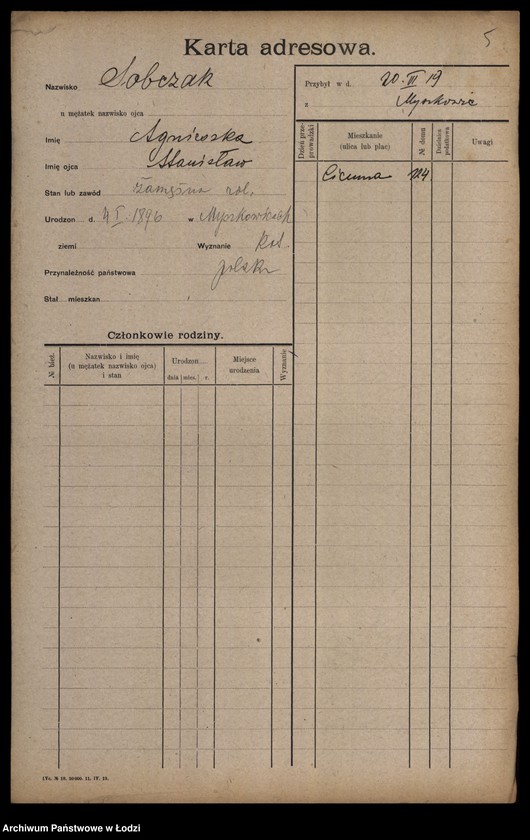 5
Karta adresowa.
Nazwisko Sobczak
u mężatek nazwisko ojca
Imię Agnieszka
Imię ojca Stanisław
Stan lub zawód zamężna rol.
Urodzon d. 4 I. 1896 w Myszkowicach
ziemi Wyznanie kat.
Przynależność państwowa polska
Stał mieszkan
Przybył w d. 20 VI 19
z Myszkowic
Dzień prze-
prowadzki
Mieszkanie
(ulica lub plac)
№ domu
Dzielnica
podatkowa
Uwagi
Ciemna 124
Członkowie rodziny.
№ bież.
Nazwisko i imię
(u mężatek nazwisko ojca)
i stan
Urodzon
dnia mies. r.
Miejsce
urodzenia
Wyznanie
Archiwum Państwowe w Łodzi